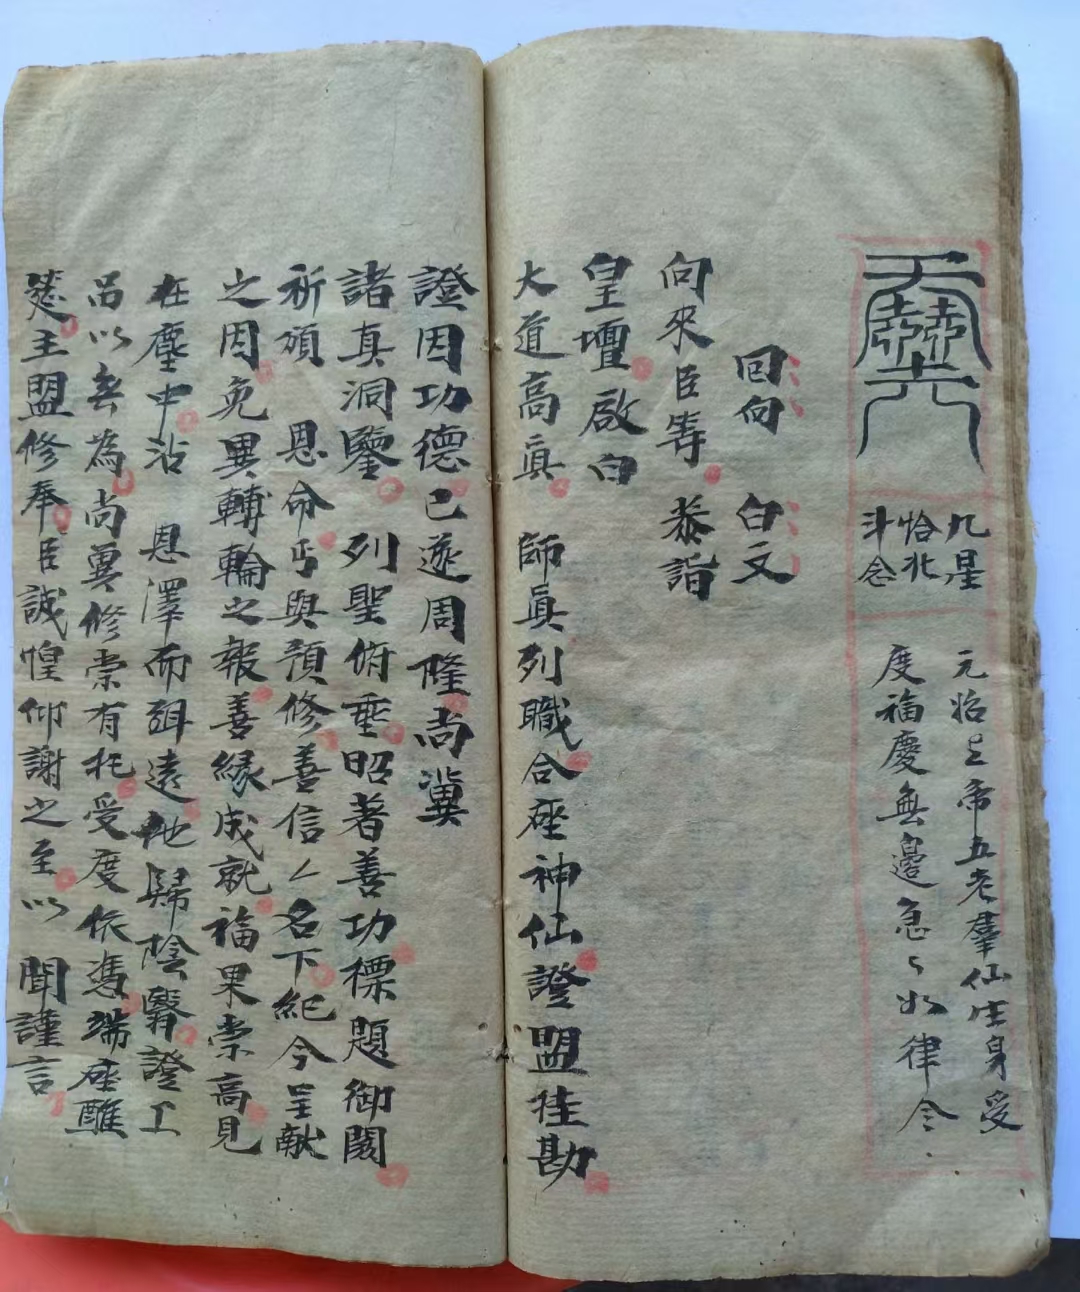 九星
恰北
斗念
元始上帝五老羣仙生身受
度福慶無邊急々如律令
回向　白文
向來臣等　恭詣
皇壇啟白
大道高眞　師眞列職合座神仙證盟佳勘
證因功德已遂周隆尚冀
諸真洞鑒　列聖俯垂昭著善功標題御闕
祈頒　恩命丐與預修善信厶名下紀今呈献
之因免異轉輪之報善縁成就福果崇高見
在塵中沾　恩澤而弭遠他歸陰翳證工
品以無為尚冀修崇有托受度依憑端座醮
筵主盟修奉臣誠惶仰謝之至以　聞謹言